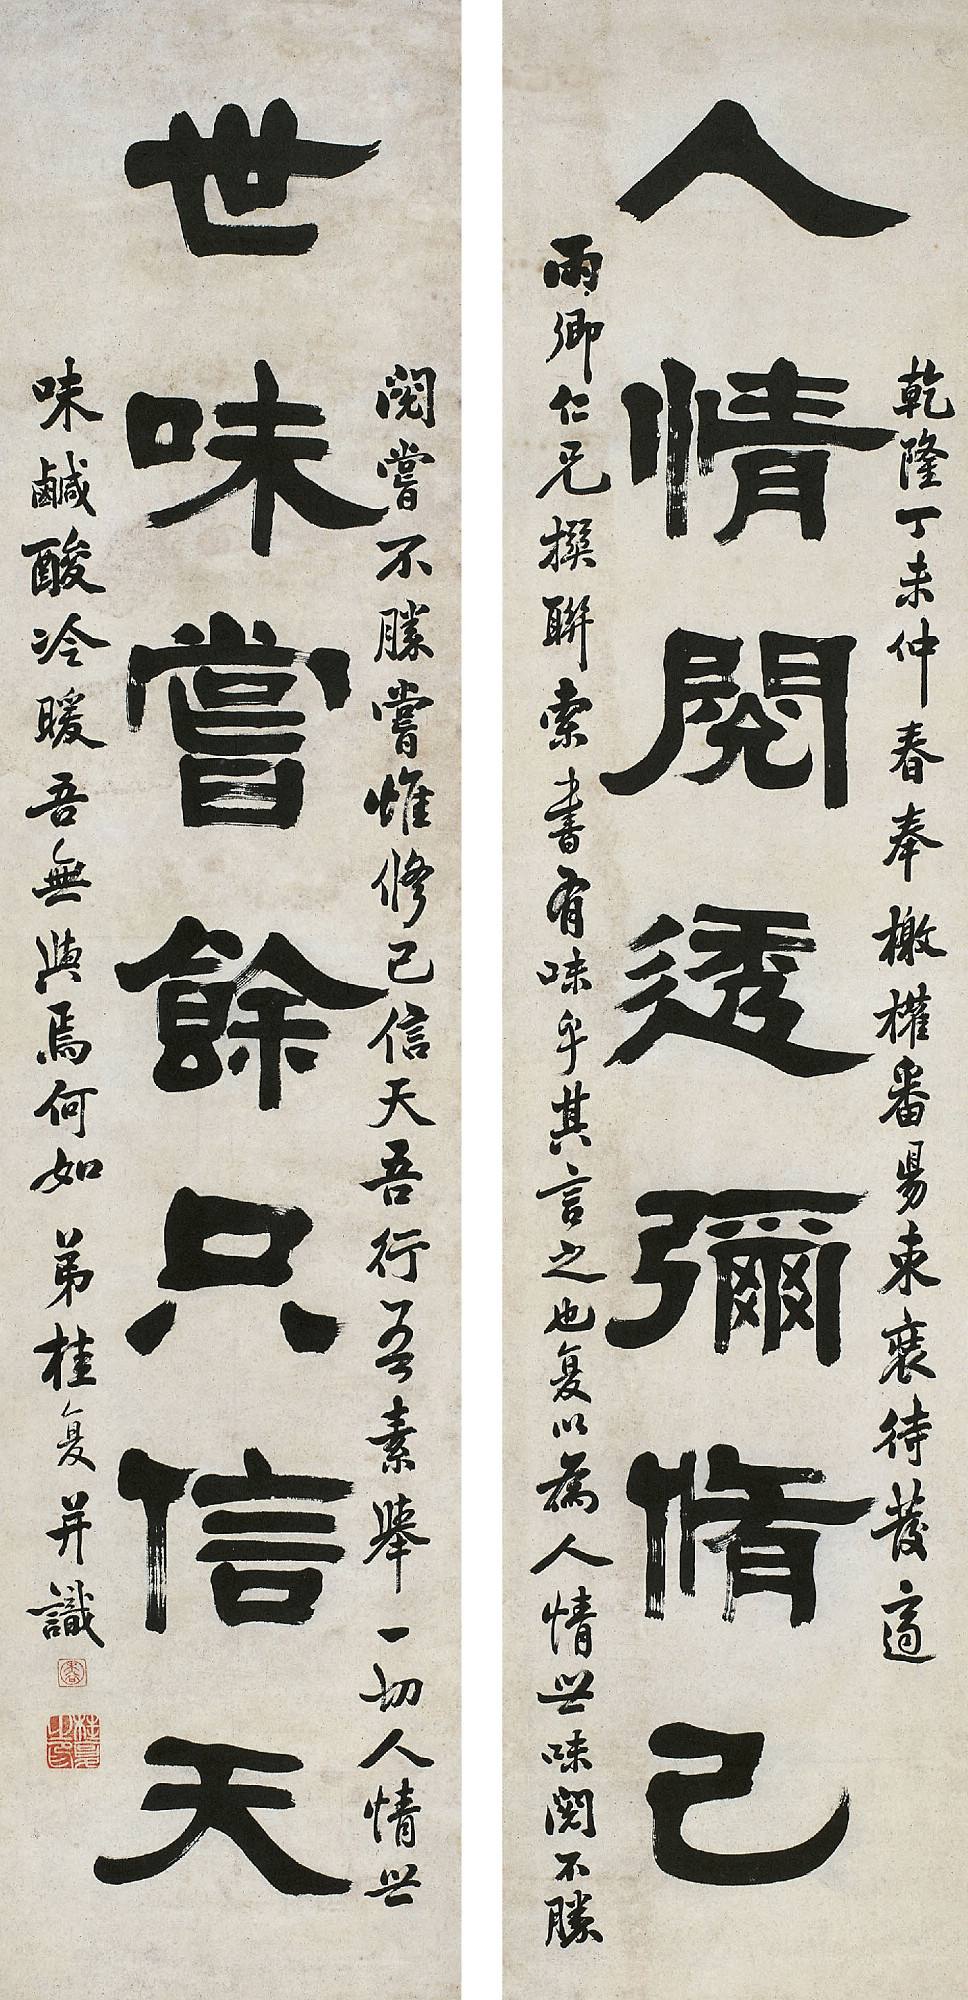 人情閱透彌脩己
乾隆丁未仲春奉檄權番昜束裝待發適
雨卿仁兄撰聯索書有味乎其言之也复以為人情世味閱不勝
世味嘗餘只信天
閱嘗不勝嘗惟修己信天吾行吾素舉一切人情世
味鹹酸冷暖吾無與焉何如弟桂复并識